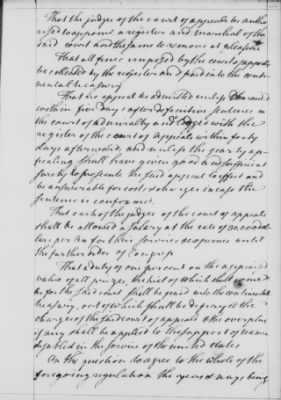 That the judges of the court of appeals be autho
rised to appoint a register and marshal of the
said court and the same to remove at pleasure
That all fines imposed by the court of appeals
be collected by the register and paid into the conti
nental treasury
That no appeal be admitted unless demanded
within five days after definitive sentence in
the court of admiralty and lodged with the
register of the court of appeals within forty
days afterward, and unless the party ap
pealing shall have given good and sufficient
surety to prosecute the said appeal to effect and
be answerable for costs charges in case the
sentence is confirmed.
That each of the judges of the court of appeals
shall be allowed a salary at the rate of 30,000 dol
lars per an for their services & expences until
the further order of Congress
That a duty of one per cent on the appraised
value of all prizes, the
for the said shall be paid into the continental
treasury, out of which shall be defrayed the
charges of the said court of appeals & the overplus
if any shall be applied to the support of seamen
disabled in the service of the united states
On the question to agree to the whole of the
foregoing regulation the yeas & nays being